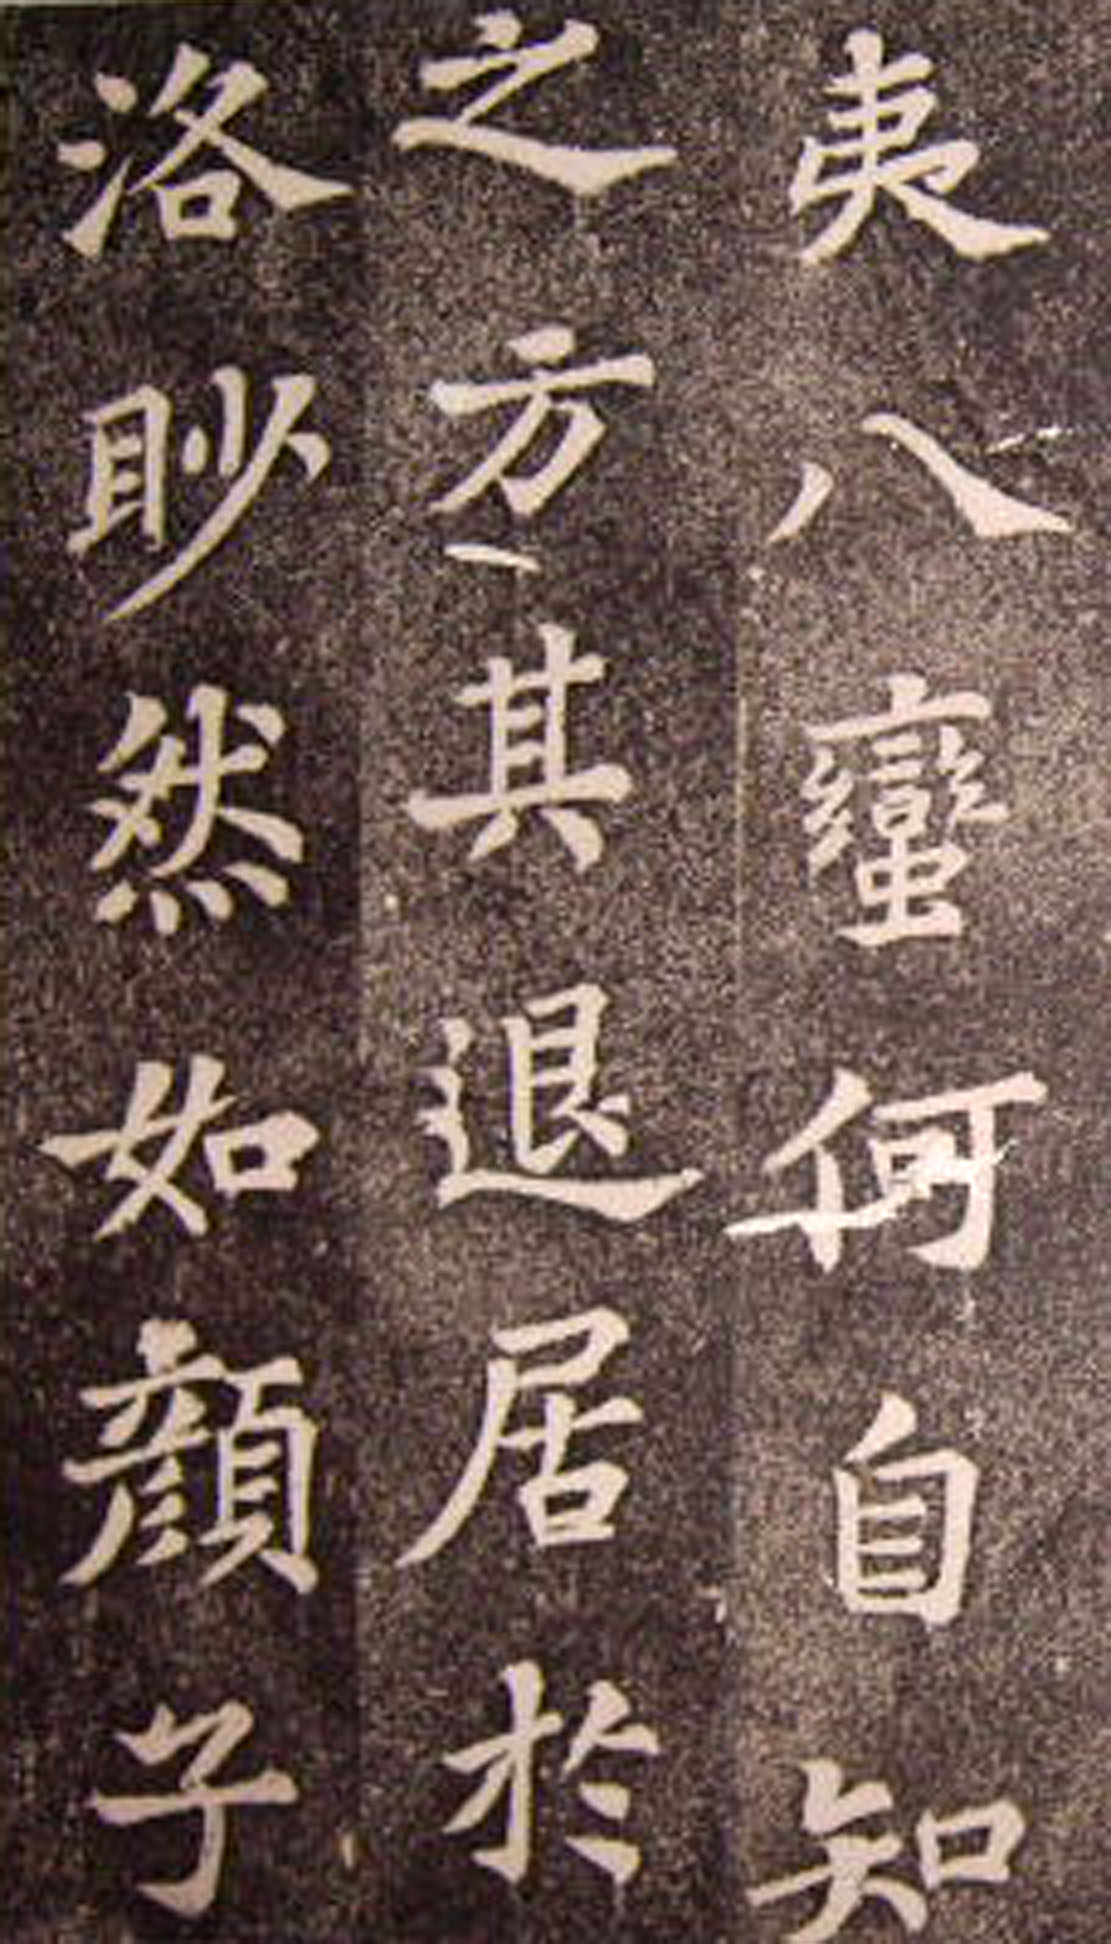 夷八蠻何自知
之方其退居於
洛眇然如顏子